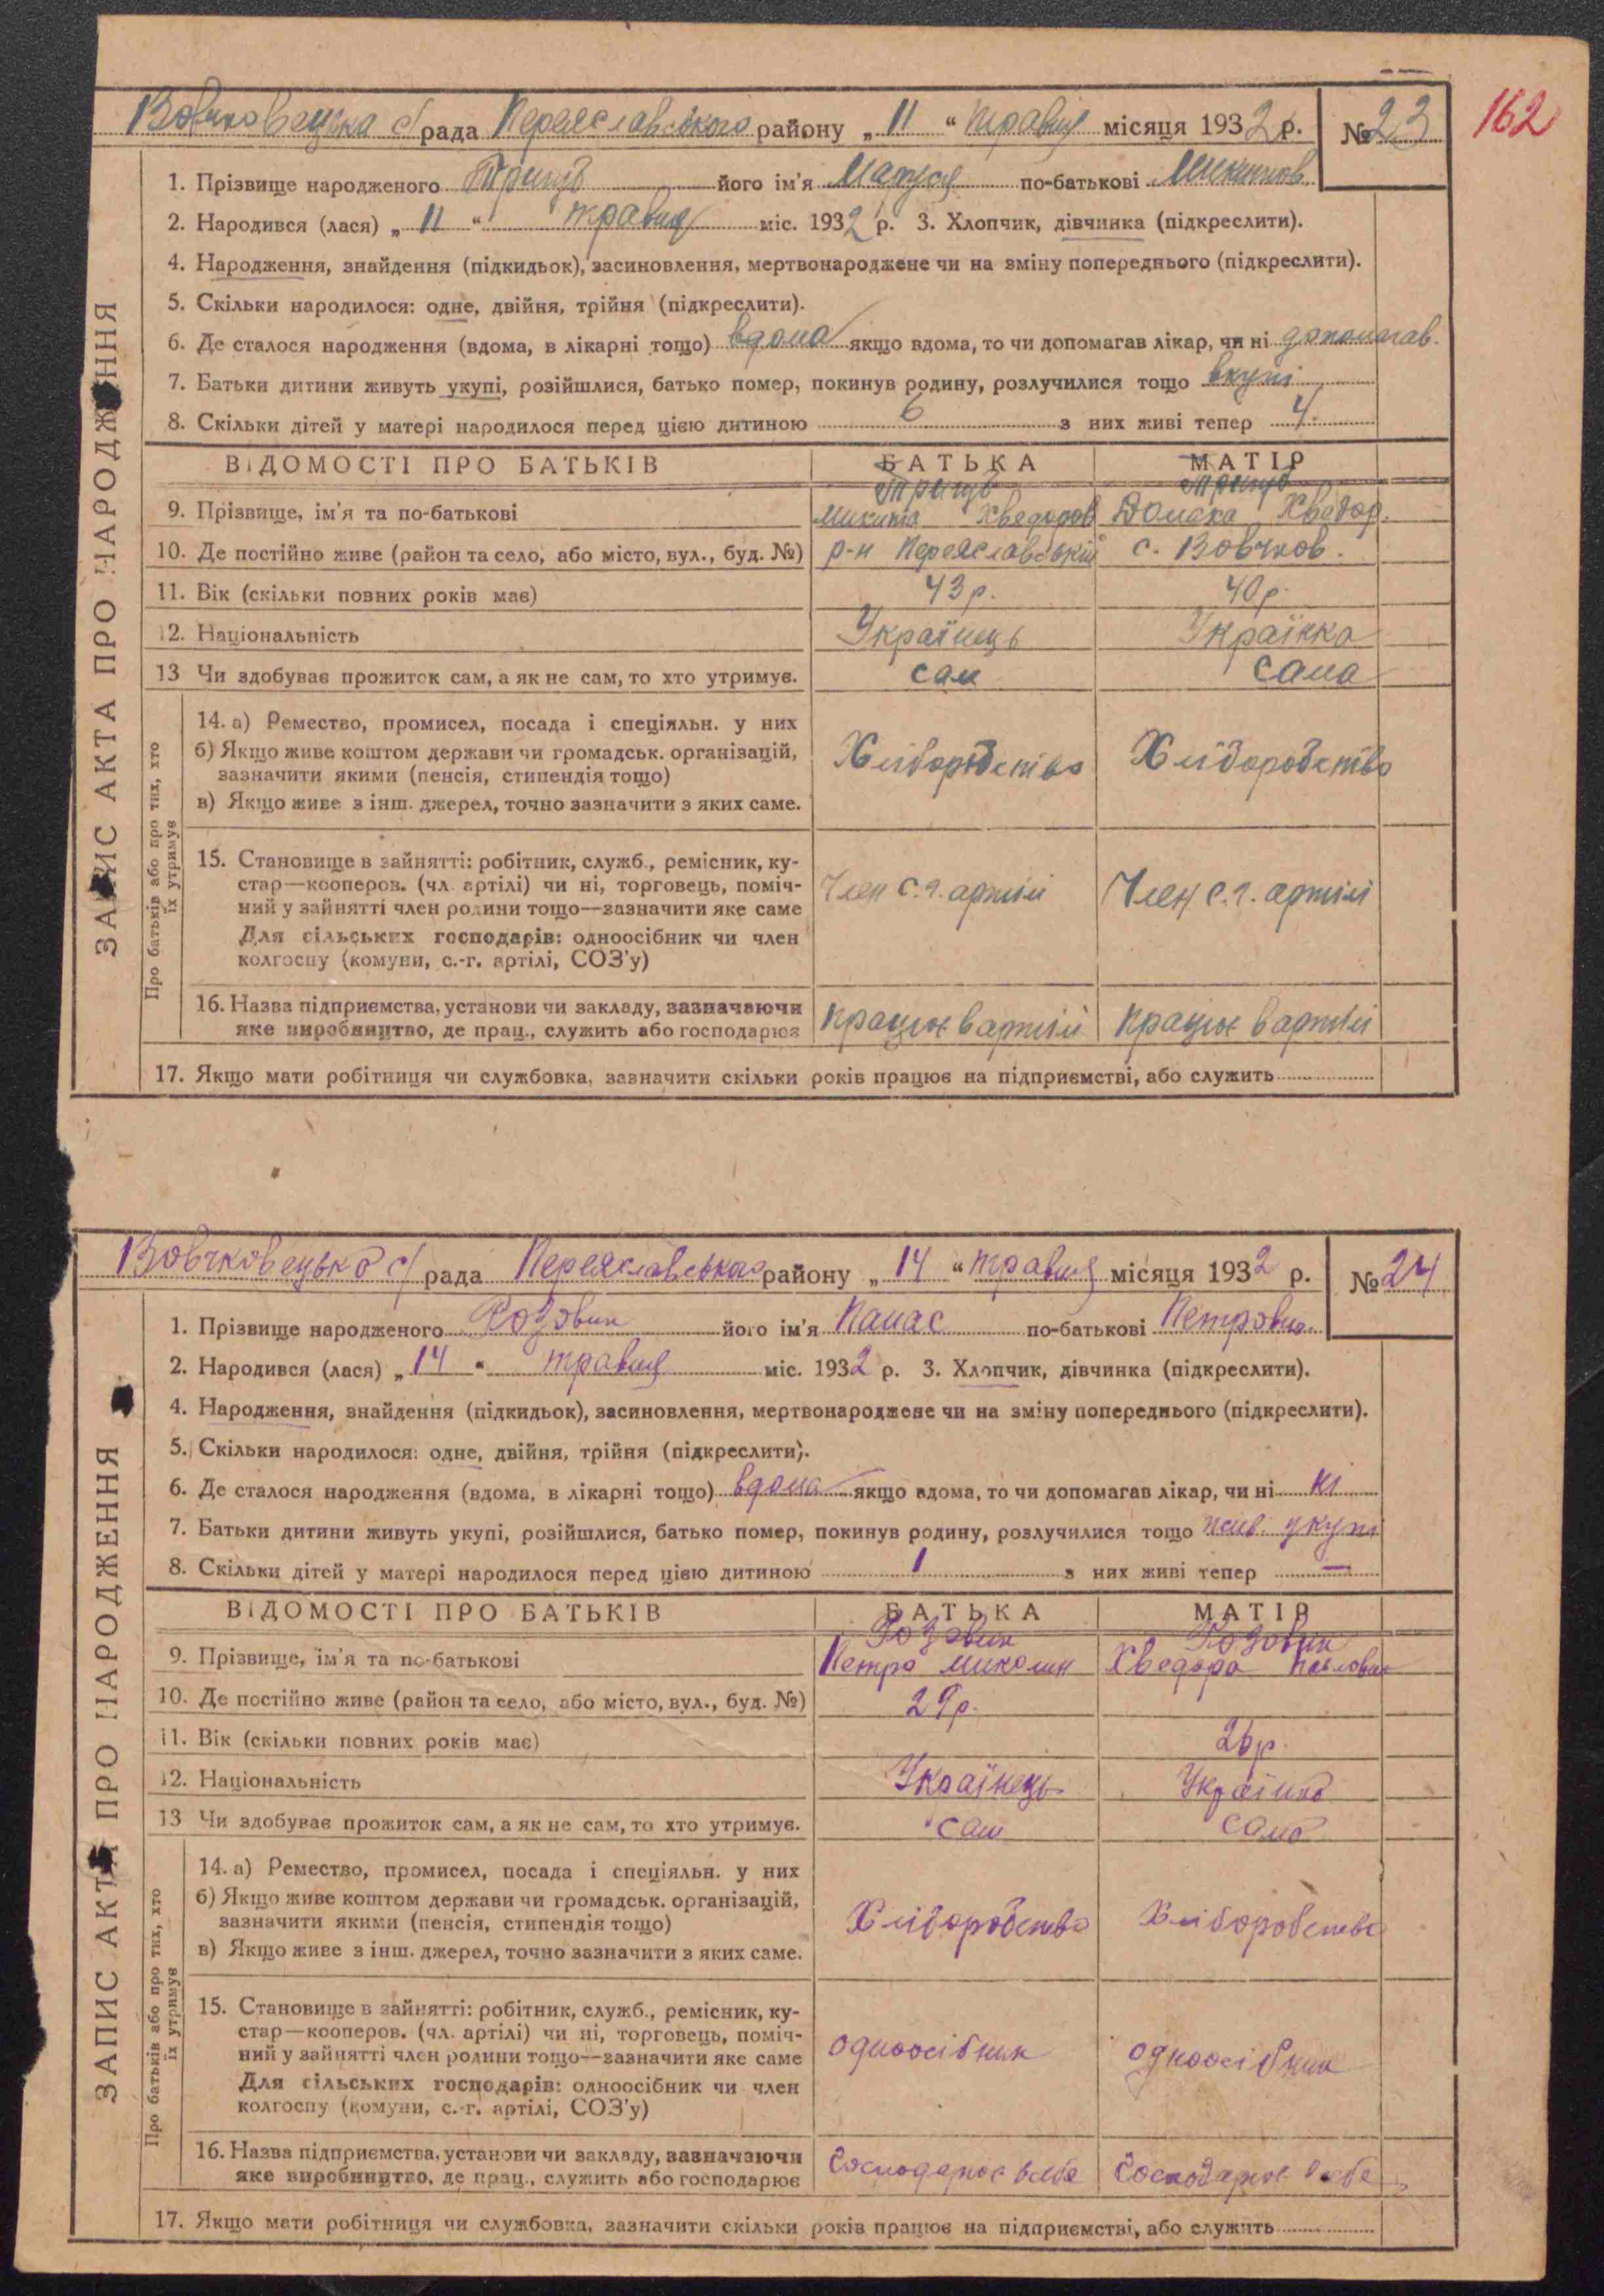 162
Вовчковецька с/рада Переяславського району „ 11 “ травня місяця 1932 р. № 23
1. Прізвище народженого його ім'я Маруся по-батькові
2. Народився (лася) „ 11 “ травня міс. 1932 р. 3. Хлопчик, дівчинка (підкреслити).
4. Народження, знайдення (підкидьок), засиновлення, мертвонароджене чи на зміну попереднього (підкреслити).
5. Скільки народилося: одне, двійня, трійня (підкреслити).
6. Де сталося народження (вдома, в лікарні тощо) вдома якщо вдома, то чи допомагав лікар, чи ні допомагав.
7. Батьки дитини живуть укупі, розійшлися, батько помер, покинув родину, розлучилися тощо вкупі
8. Скільки дітей у матері народилося перед цією дитиною 6 з них живі тепер 4.
ВІДОМОСТІ ПРО БАТЬКІВ БАТЬКА МАТІР
9. Прізвище, ім'я та по-батькові Микита Хведоров Домаха Хведор.
10. Де постійно живе (район та село, або місто, вул., буд. №) р-н Переяславський с. Вовчков.
11. Вік (скільки повних років має) 43 р. 40 р.
12. Національність Українець Українка
13 Чи здобуває прожиток сам, а як не сам, то хто утримує. сам сама
14. а) Ремество, промисел, посада і спеціяльн. у них
б) Якщо живе коштом держави чи громадськ. організацій,
зазначити якими (пенсія, стипендія тощо) Хліборобство Хліборобство
в) Якщо живе з інш. джерел, точно зазначити з яких саме.
15. Становище в зайнятті: робітник, служб., ремісник, ку-
стар—кооперов. (чл. артілі) чи ні, торговець, поміч- Член с.г. артілі Член с.г. артілі
ний у зайнятті член родини тощо—зазначити яке саме
Для сільських господарів: одноосібник чи член
колгоспу (комуни, с.-г. артілі, СОЗ'у)
16. Назва підприємства, установи чи закладу, зазначаючи
яке виробництво, де прац., служить або господарює працює в артілі працює в артілі
17. Якщо мати робітниця чи службовка, зазначити скільки років працює на підприємстві, або служить
ЗАПИС АКТА ПРО НАРОДЖЕННЯ
Про батьків або про тих, хто
їх утримує
Вовчковецька с/рада Переяславського району „ 14 “ травня місяця 1932 р. № 24
1. Прізвище народженого Розовик його ім'я Панас по-батькові Петрович.
2. Народився (лася) „ 14 “ травня міс. 1932 р. 3. Хлопчик, дівчинка (підкреслити).
4. Народження, знайдення (підкидьок), засиновлення, мертвонароджене чи на зміну попереднього (підкреслити).
5. Скільки народилося: одне, двійня, трійня (підкреслити).
6. Де сталося народження (вдома, в лікарні тощо) вдома якщо вдома, то чи допомагав лікар, чи ні ні
7. Батьки дитини живуть укупі, розійшлися, батько помер, покинув родину, розлучилися тощо жив. укупі
8. Скільки дітей у матері народилося перед цією дитиною 1 з них живі тепер —
ВІДОМОСТІ ПРО БАТЬКІВ БАТЬКА МАТІР
Розовик Розовик
9. Прізвище, ім'я та по-батькові Петро Миколин Хведора Павловна
10. Де постійно живе (район та село, або місто, вул., буд. №) 29 р.
11. Вік (скільки повних років має) 26 р.
12. Національність Українець Українка
13 Чи здобуває прожиток сам, а як не сам, то хто утримує. сам сама
14. а) Ремество, промисел, посада і спеціяльн. у них
б) Якщо живе коштом держави чи громадськ. організацій,
зазначити якими (пенсія, стипендія тощо) Хліборобство Хліборобство
в) Якщо живе з інш. джерел, точно зазначити з яких саме.
15. Становище в зайнятті: робітник, служб., ремісник, ку-
стар—кооперов. (чл. артілі) чи ні, торговець, поміч-
ний у зайнятті член родини тощо—зазначити яке саме одноосібник одноосібник
Для сільських господарів: одноосібник чи член
колгоспу (комуни, с.-г. артілі, СОЗ'у)
16. Назва підприємства, установи чи закладу, зазначаючи
яке виробництво, де прац., служить або господарює Господарює в себе Господарює в себе
17. Якщо мати робітниця чи службовка, зазначити скільки років працює на підприємстві, або служить
ЗАПИС АКТА ПРО НАРОДЖЕННЯ
Про батьків або про тих, хто
їх утримує